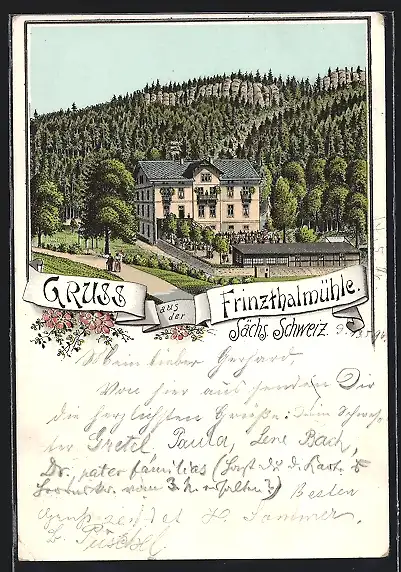 GRUSS
aus
der
Frinzthalmühle.
Sächs. Schweiz.
Mein lieber Gerhard,
Von hier aus senden Dir
die herzlichsten Grüße: Dein Schwes-
ter Gretel, Paula, Lene Bach,
Dr. pater familias (hast du d. Karte
vom 3. h. erhalten?) Besten
H. Sommer,